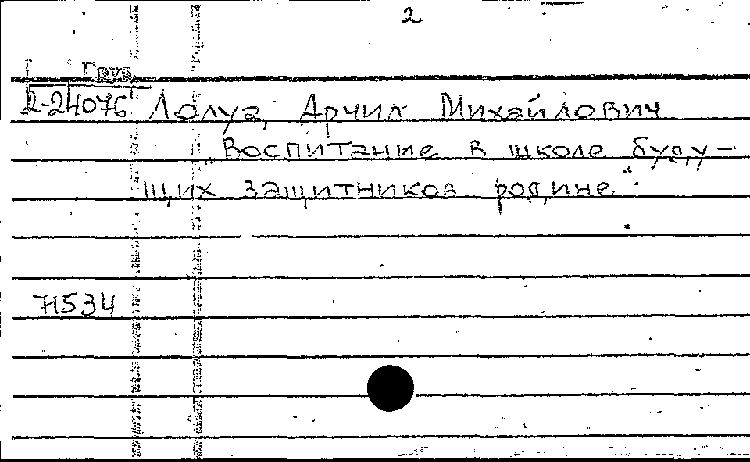 2
Груз
2-24076 Лолуа, Арчил Михайлович
„Воспитание в школе буду-
щих защитников родине".
71534